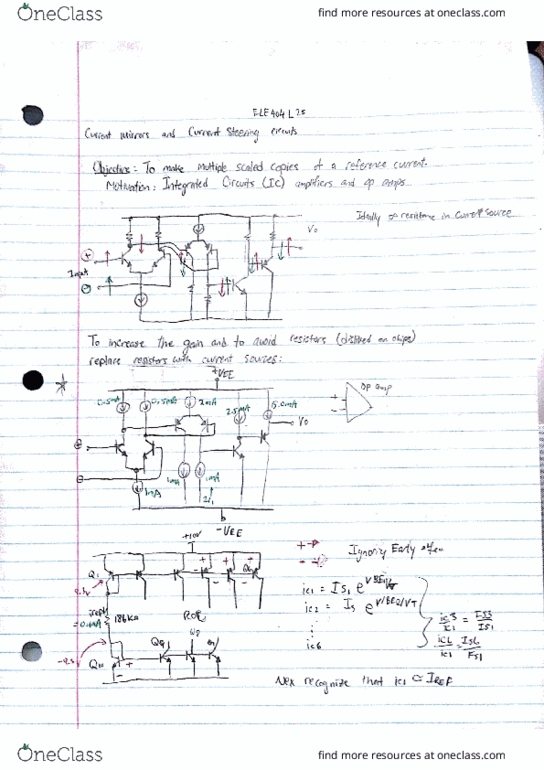 OneClass
find more resources at oneclass.com
ELE404 L25
Current mirrors and Current Steering circuits
Objective: To make multiple scaled copies of a reference current.
Motivation: Integrated Circuits (IC) amplifiers and op amps
Ideally ∞ resistance in Current Source
Vo
+
Input
To increase the gain and to avoid resistors (disliked on chips)
replace resistors with current sources:
+VEE
0.5mA
0.5mA
2mA
2.5mA
5.0mA
Op Amp
Vo
1mA
1mA
1mA
-VEE
+10V
Ignoring Early
Q1
ic1 = IS1 e^VBE1/VT
ic2 = Is e^VBE2/VT
ic3/ic1 = IS3/IS1
IREF
186KΩ
ic6
ic6/ic1 = IS6/IS1
Q9
Nex recognize that ic1 ≅ IREF
OneClass
find more resources at oneclass.com